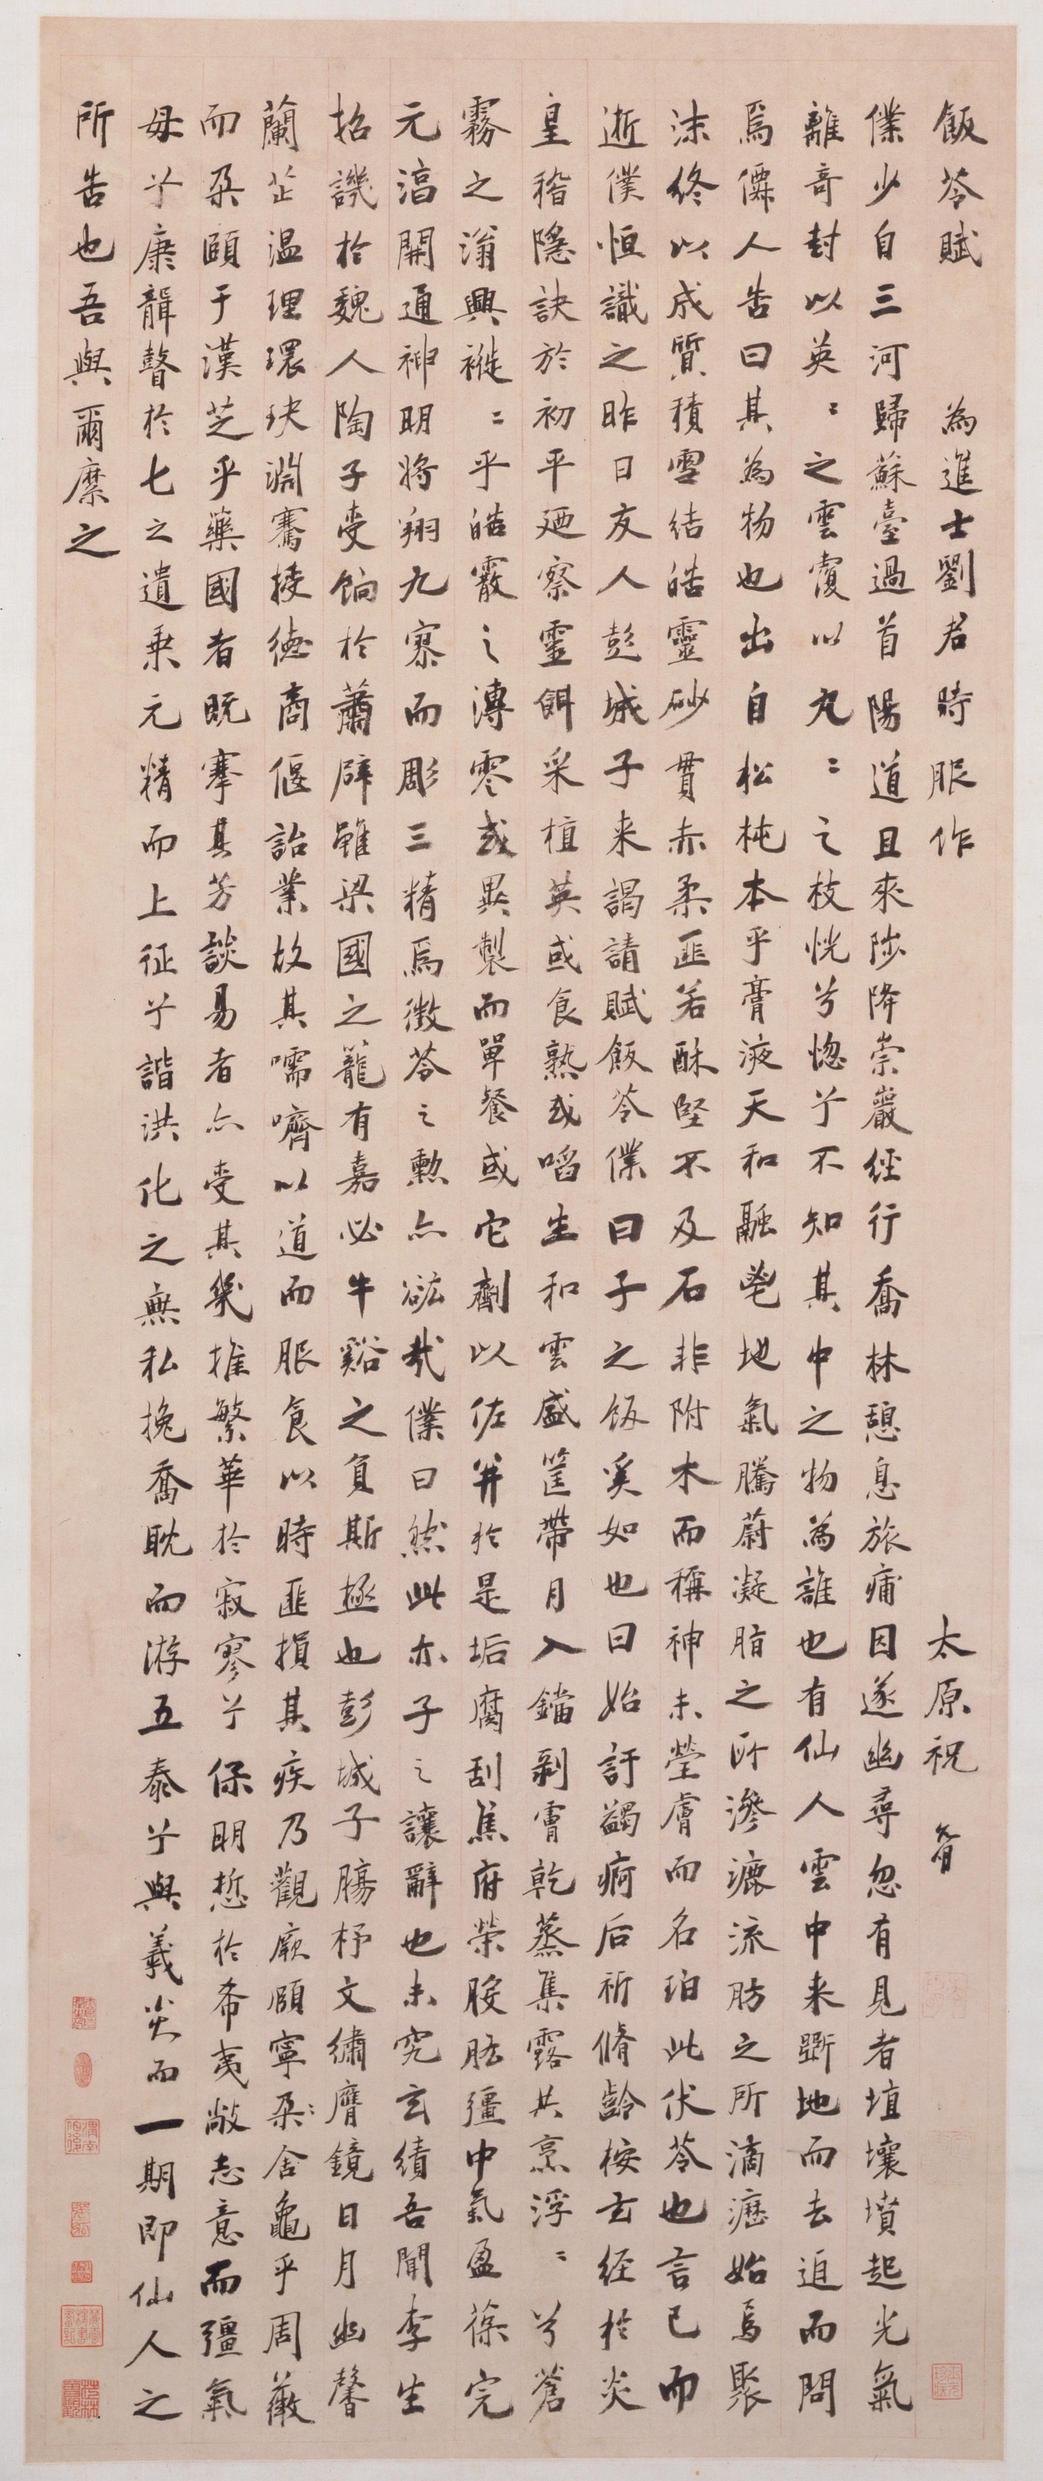 飯苓賦 為進士劉君時服作 太原祝
僕少自三河歸蘇臺過首陽道且來陟降崇巖經行喬林憩息旅痡因遂幽尋忽有見者埴壤墳起光氣
離奇封以英〻之雲覆以丸〻之枝恍兮惚兮不知其中之物為誰也有仙人雲中来斲地而去迫而問
焉僊人告曰其為物也出自松杶本乎膏液天和融鬯地氣騰蔚凝脂之所滲漉流肪之所滴瀝始焉聚
沫終以成質積雪結皓靈砂貫赤柔匪若酥堅不及石非附木而稱神未瑩膚而名珀此伏苓也言已而
逝僕恒識之昨日友人彭城子来謁請賦飯苓僕曰子之飯奚如也曰始訝蠲痾后祈脩齡桉古经於炎
皇稽隱訣於初平廼察靈餌采植英或食熟或啗生和雲盛筐帶月入鐺剥膚乾蒸集露共烹浮〻兮蒼
霧之滃興褷〻乎皓霰之漙零或異製而單餐或它劑以佐并於是垢腐刮焦府榮朘胠彊中氣盈葆完
元滀開通神明將翔九寥而彫三精焉徴苓之勲亦竑哉僕曰然此亦子之讓辭也未究玄績吾聞李生
招譏於魏人陶子受餉於蕭辟雖梁國之寵有嘉必牛谿之負斯極也彭城子腸杼文繡膺鏡日月幽馨
蘭芷温理環玦淵騫接德商偃詒業故其嚅嚌以道而服食以時匪損其疾乃觀厥頤寧朶〻舍龜乎周薇
而朶頤于漢芝乎藥國者既搴其芳談易者亦受其筮摧繁華於寂寥兮保明悊於希夷敞志意而彊氣
毋兮康聾瞽於七之遺乗元精而上征兮諧洪化之無私挽喬耽而游五泰兮與羲炎而一期即仙人之
所告也吾與爾糜之